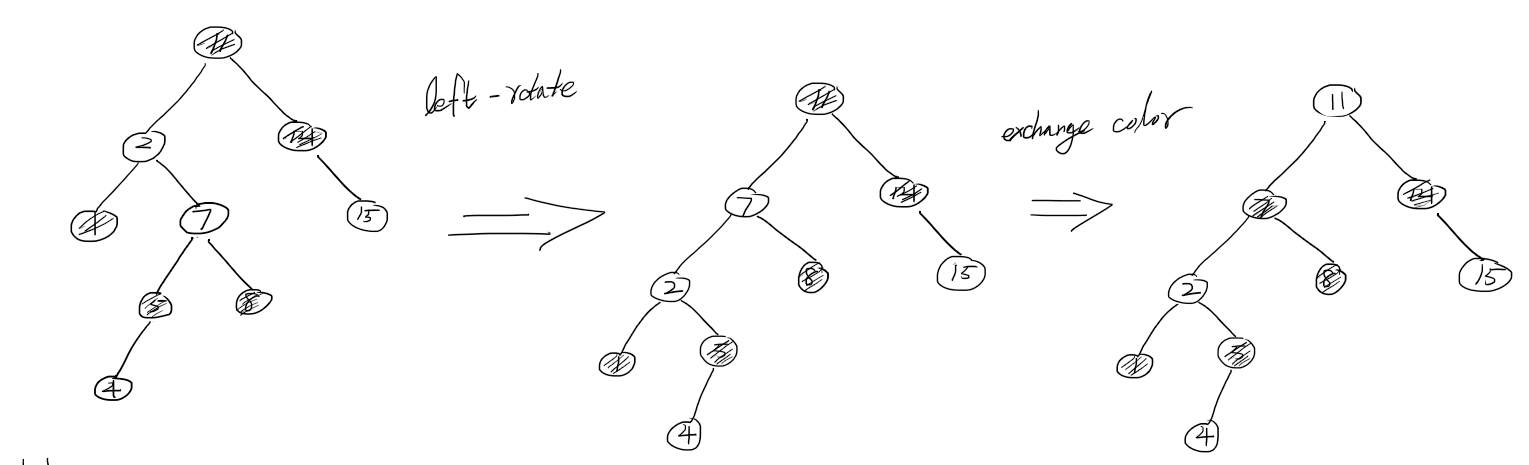 11
2
14
1
7
15
5
8
4
left-rotate
11
7
14
2
8
15
1
5
4
exchange color
11
7
14
2
8
15
1
5
4